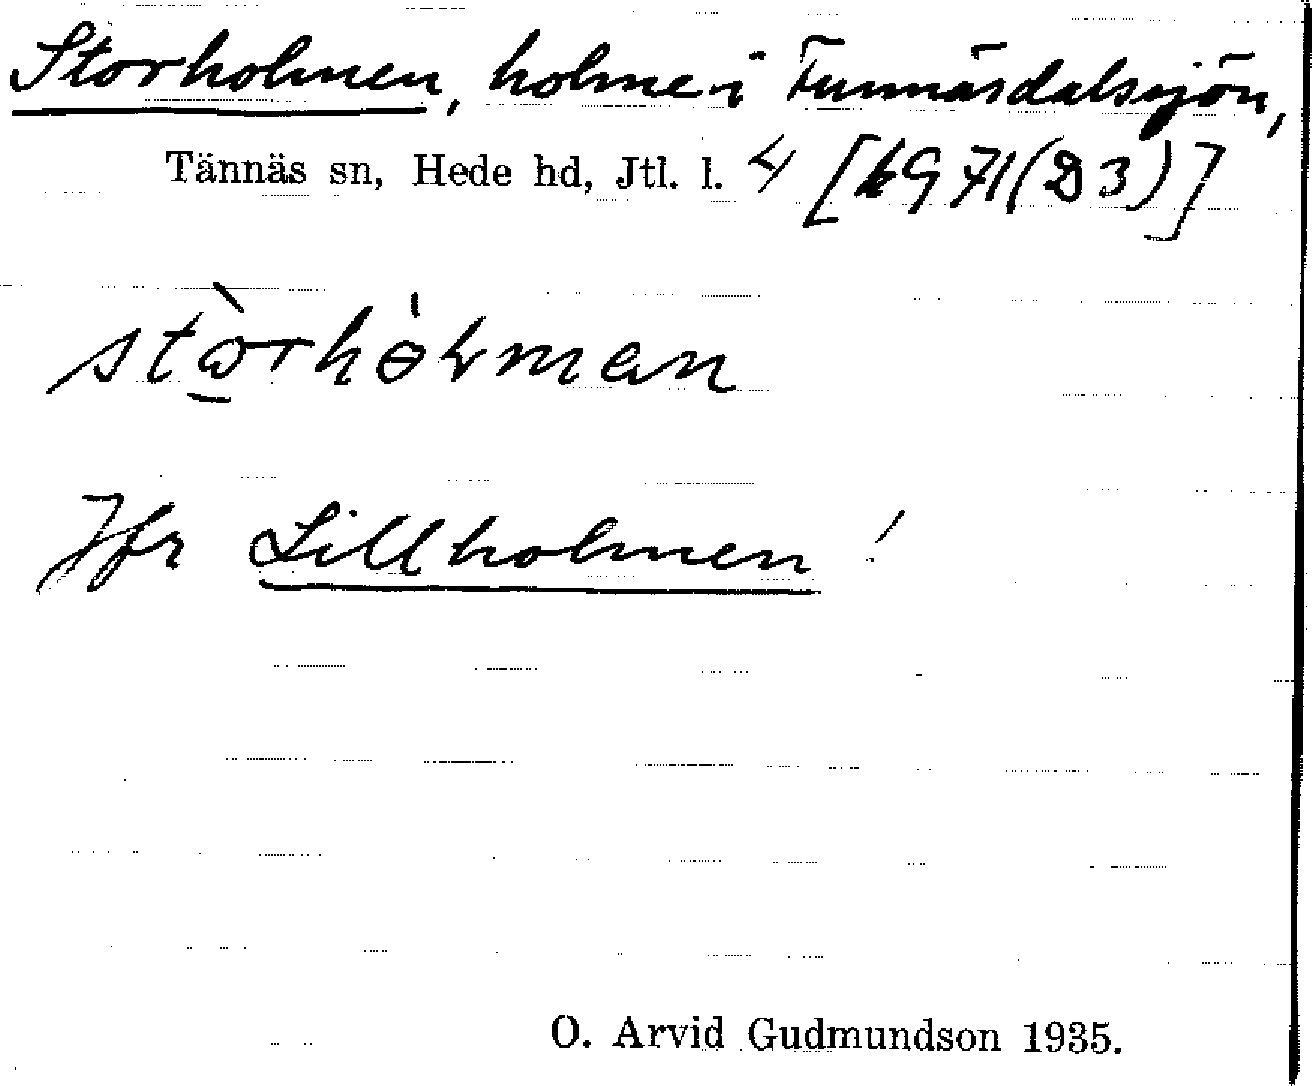 Storholmen, holme i Funnäsdalssjön,
Tännäs sn, Hede hd, Jtl. l. 4 [k971(D3)]
stòrhólman
Jfr Lillholmen!
O. Arvid Gudmundson 1935.